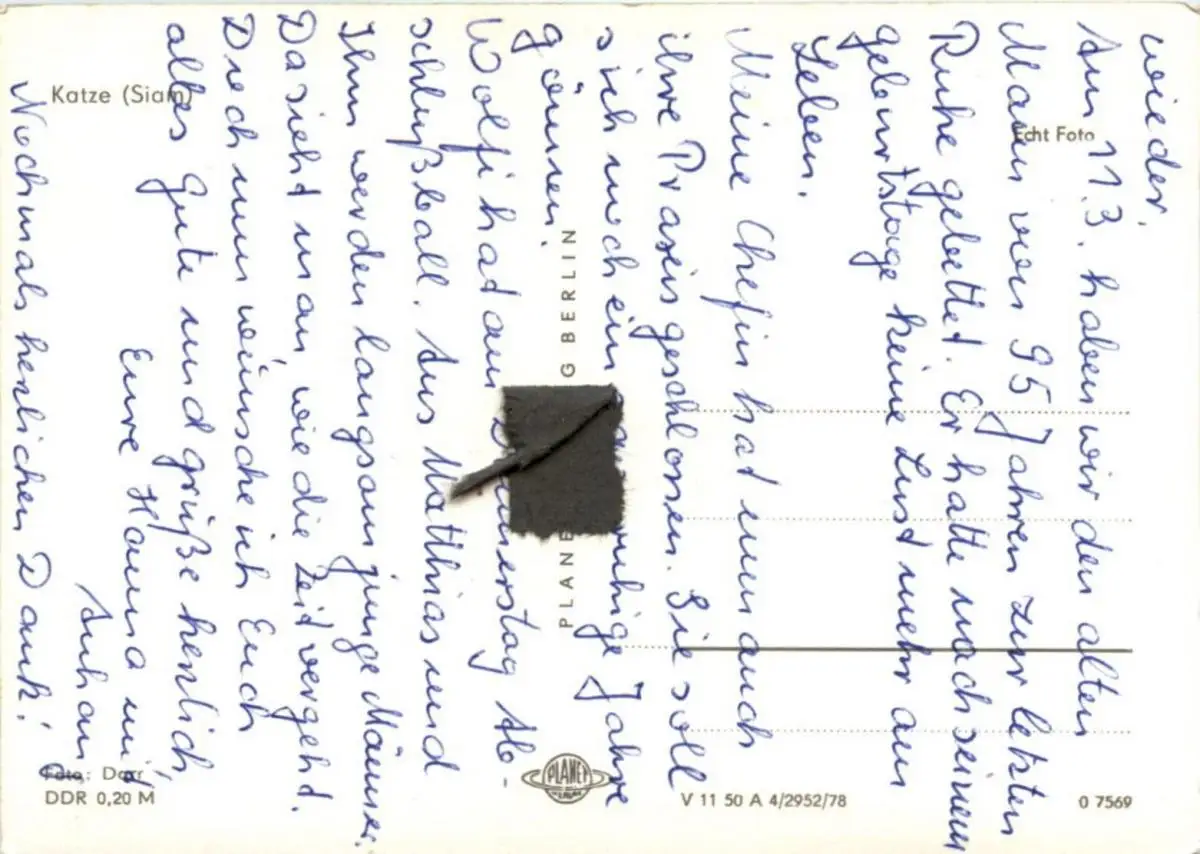 wieder.
Am 11.3. haben wir den alten
Mann von 95 Jahren zur letzten
Ruhe gebettet. Er hatte nach seinem
geburtstage keine Lust mehr am
Leben.
Meine Chefin hat nun auch
ihre Praxis geschlossen. Sie soll
sich noch ein ruhige Jahre
gönnen.
Wolfi hat am Donnerstag Ab-
schlußball. Aus Matthias und
Ihm werden langsam junge Männer.
Da sieht man, wie die Zeit vergeht.
Doch nun wünsche ich Euch
alles Gute und grüße herzlich
Eure Hanna mit
Anhang
Nochmals herzlichen Dank!
Katze (Siam)
Echt Foto
PLANE G BERLIN
PLANET
Foto: Darr
DDR 0,20 M
V 11 50 A 4/2952/78
0 7569